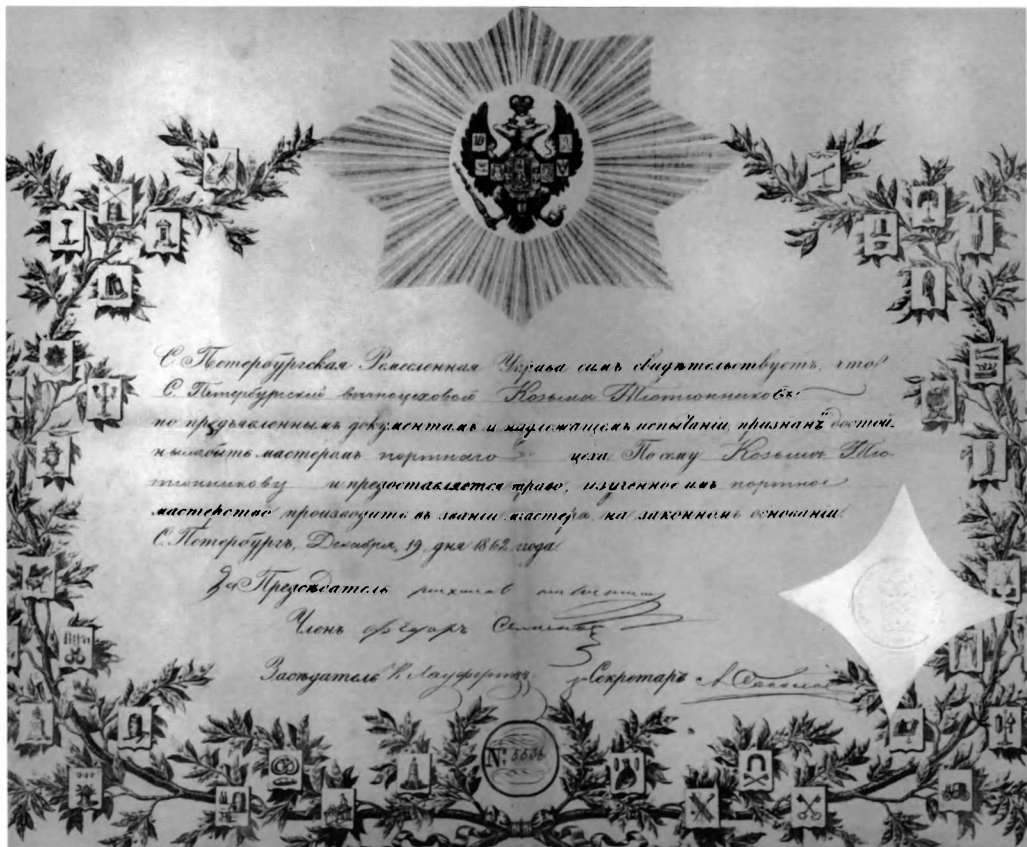 С. Петербургская Ремесленная Управа симъ свидѣтельствуетъ, что
С. Петербургский вѣчноцеховой Козьма Тютюнниковъ
по предъявленнымъ документамъ и надлежащемъ испытаніи, признанъ достой-
нымъ быть мастеромъ портнаго цеха. По сему Козьма Тю-
тюнникову и предоставляется право, изученное имъ портное
мастерство производить въ званіи мастера, на законномъ основаніи.
С. Петербургъ, Декабря, 19 дня 1862 года
За Предсѣдатель
Членъ Федоръ
Засѣдатель К. Секретарь А.
№ 5536